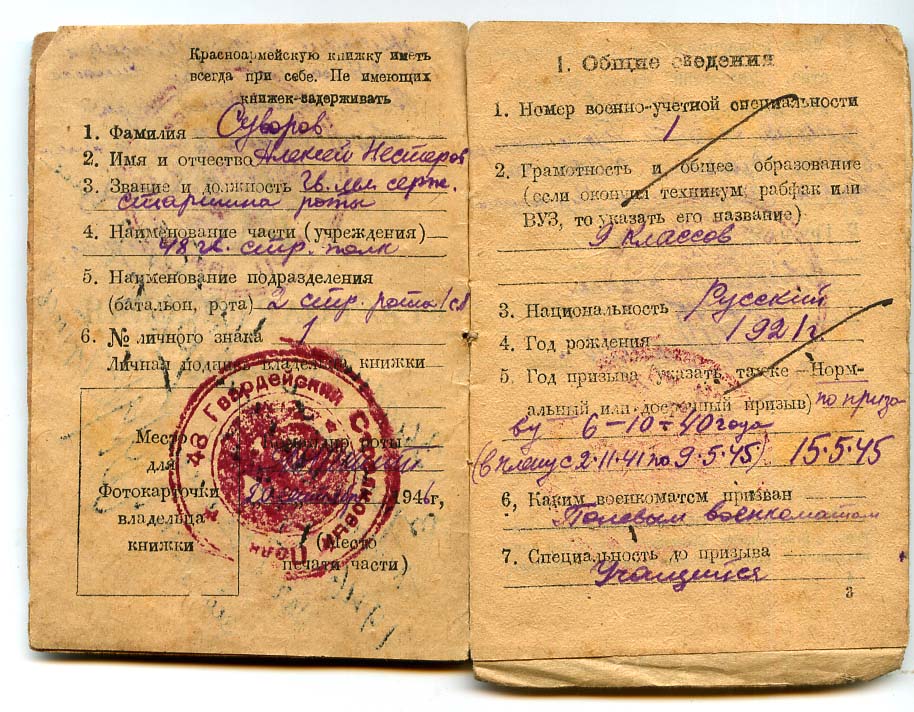 Красноармейскую книжку иметь
всегда при себе. Не имеющих
книжек-задерживать
1. Фамилия Суворов
2. Имя и отчество Алексей Нестеров
3. Звание и должность Гв. мл. серж.
старшина роты
4. Наименование части (учреждения)
48 гв. стр. полк
5. Наименование подразделения
(батальон, рота) 2 стр. рота 1 сб
6. № личного знака 1
Личная подпись владельца книжки
Место
для
Фотокарточки
владельца
книжки
Командир роты
1946г,
(Место
печати части)
48 Гвардейский Стрелковый Полк
1. Общие сведения
1. Номер военно-учетной специальности
1
2. Грамотность и общее образование
(если окончил техникум, рабфак или
ВУЗ, то указать его название)
9 классов
3. Национальность Русский
4. Год рождения 1921г.
5. Год призыва (указать также Норм-
альный или досрочный призыв) по призы
ву 6-10-40 года
(в плену с 2.11.41 по 9.5.45) 15.5.45
6, Каким военкоматом призван
Полевым военкоматом
7. Специальность до призыва
Учащийся
3